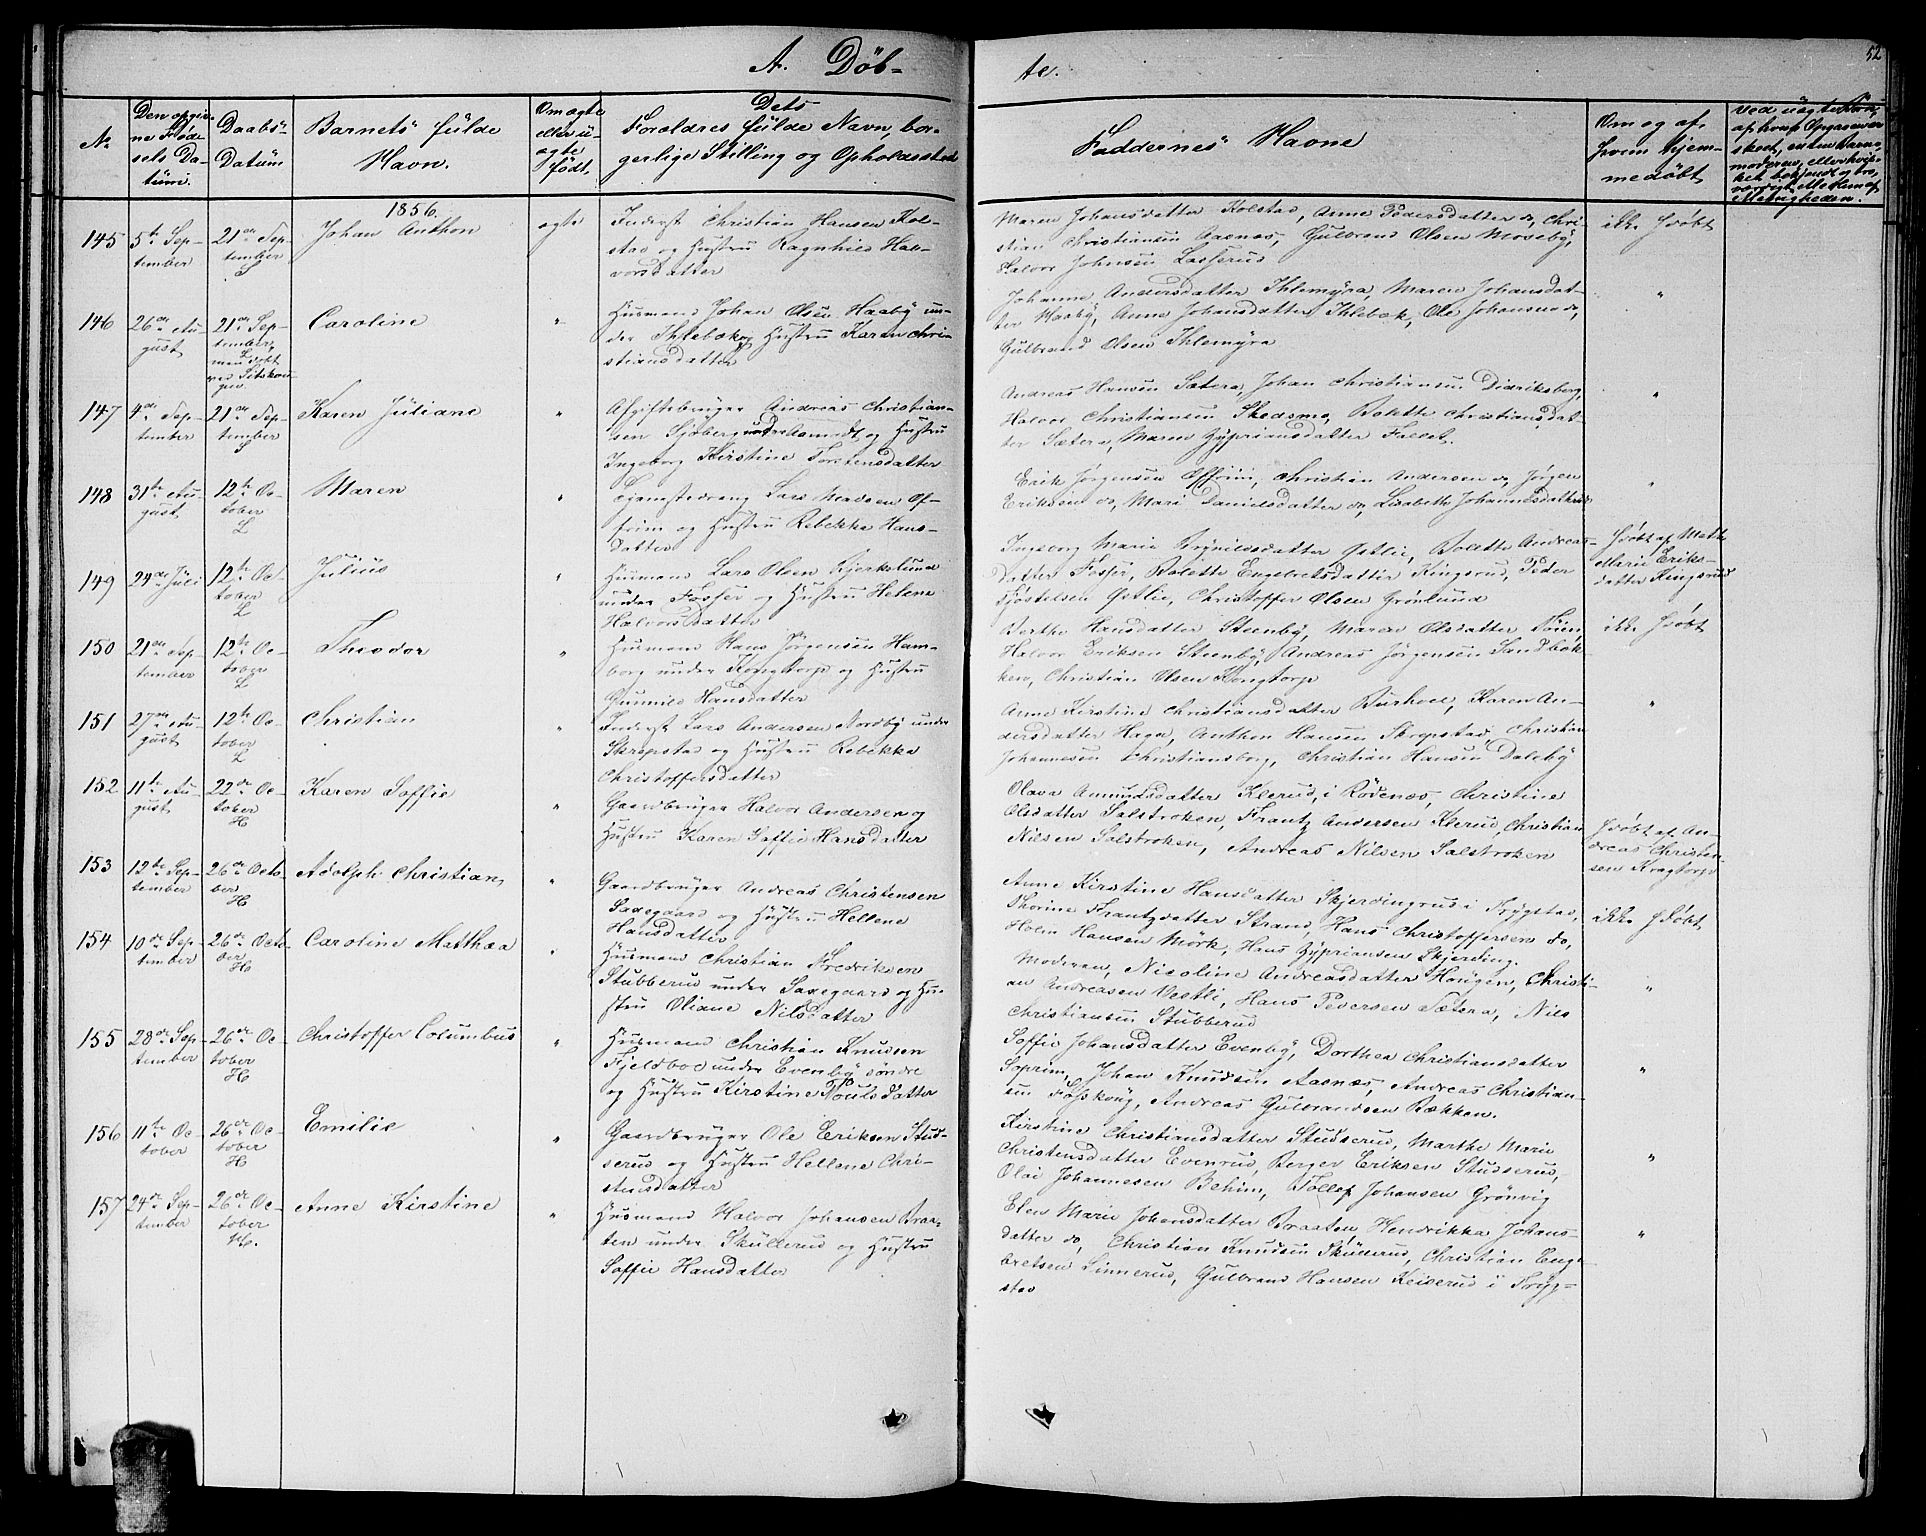 52
A. Döb-
te.
No
Den opgiv-
ne Föd-
sels Da-
tum.
Daabs-
Datum
Barnets fulde
Navn.
Om ægte
eller u-
ægte
födt.
Dets
Forældres fulde Navn, bor-
gerlige Stilling og Opholdssted
Faddernes Navne
Om og af
hvem hjem-
medöbt
1856.
145
5te Sep-
tember
21de Sep-
tember
Johan Anthon
ægte
Inderst Christian Hansen Kol-
stad og Hustru Ragnhild Hal-
vorsdatter
Maren Johansdatter Kolstad, Anne Pedersdatter do, Chri-
stian Christiansen Aasnæs, Gulbrand Olsen Moseby,
Halvor Johnsen Lasserud
ikke hjdöbt
146
26de Au-
gust
21de Sep-
tember,
Caroline
"
Husmand Johan Olsen Haaby un-
der Ihlebæk og Hustru Karen Chri-
stiansdatter
Johanne Andersdatter Ihlemyra, Maren Johansdat-
ter Haaby, Anne Johansdatter Ihlebæk, Ole Johansen do,
Gulbrand Olsen Ihlemyra
"
147
4de Sep-
tember
21de Sep-
tember
Karen Juliane
"
Afgiftsbruger Andreas Christian-
sen Sjöberg under og Hustru
Ingeborg Kirstine Torstensdatter
Andreas Hansen Sætera, Johan Christiansen Didriksborg,
Halvor Christiansen Skedsmo, Bolette Christiansdat-
ter Sætera, Maren Zypriansdatter Fallet.
"
148
31te Au-
gust
12te Oc-
tober
L
Maren
"
Tjenestedreng Lars Madsen Of-
frim og Hustru Rebekka Hans-
datter
Erik Jörgensen Offrim, Christian Andersen do, Jörgen
Eriksen do, Mari Danielsdatter do, Lisabeth Johannesdatter do
"
149
24de Juli
12te Oc-
tober
L
Julius
"
Husmand Lars Olsen Kjerkelund
under Fosser og Hustru Helene
Halvorsdatter
Ingeborg Marie Östlie, Bolette Andreas-
datter Fosser, Bolette Engebretsdatter Kingsrud, Peder
Östlie, Christoffer Olsen Grönlund
hjdöbt af
Marie Eriks-
datter Kingsrud
150
21de Sep-
tember
12te Oc-
tober
L
Theodor
"
Husmand Hans Jörgensen Ham-
borg under Kragtorp og Hustru
Gunnild Hansdatter
Berthe Hansdatter Steenby, Maren Olsdatter
Halvor Eriksen Steenby, Andreas Jörgensen Sandbak-
ken, Christian Olsen Kragtorp
ikke hjdöbt
151
27de Au-
gust
12te Oc-
tober
L
Christian
"
Inderst Lars Andersen Nordby under
Skrepstad og Hustru Rebekka
Christoffersdatter
Anne Kirstine Christiansdatter Burhoel, Karen An-
dersdatter Haga, Anthon Hansen Skrepstad, Christian
Johannesen Christiansborg, Christian Hansen Daleby
"
152
11te Au-
gust
22de Oc-
tober
H
Karen Soffie
"
Gaardbruger Halvor Andersen og
Hustru Karen Soffie Hansdatter
Olava Amundsdatter Klerud, i Rödenæs, Christine
Olsdatter Salstroken, Frantz Andersen Klerud, Christian
Nilsen Salstroken, Andreas Nilsen Salstroken
hjdöbt af An-
dreas Christen-
sen Kragtorp
153
12te Sep-
tember
26de Octo-
ber
H
Adolph Christian
"
Gaardbruger Andreas Christensen
Saxegaard og Hustru Hellene
Hansdatter
Anne Kirstine Hansdatter Skjerdingrud i Trygstad,
Thorine Frantzdatter Strand, Hans Christoffersen do,
Holm Hansen Mörk, Hans Zypriansen Skjerding.
ikke hjdöbt
154
10de Sep-
tember
26de Octo-
ber
H
Caroline Matthæa
"
Husmand Christian Fredriksen
Stubberud under Saxegaard og Hu-
stru Oliane Nilsdatter
Moderen, Nicoline Andreasdatter Hougen, Christi-
an Andreasen Vestli, Hans Pedersen Sætera, Nils
Christiansen Stubberud
"
155
28de Sep-
tember
26de Oc-
tober
H
Christoffer Columbus
"
Husmand Christian Knudsen
Fjeldboe under Evenby söndre
og Hustru Kirstine Poulsdatter
Soffie Johansdatter Evenby, Dorthea Christiansdatter
Soprim, Johan Knudsen Aasnæs, Andreas Christian-
sen Fosskoug, Andreas Gulbrandsen Bækken.
"
156
11te Oc-
tober
26de Oc-
tober
H
Emilie
"
Gaardbruger Ole Eriksen Stud-
serud og Hustru Hellene Chri-
stensdatter
Kirstine Christiansdatter Studserud, Marthe Marie
Christensdatter Evenrud, Berger Eriksen Studserud,
Olai Johannesen Behim, Tollef Johansen Grönvig
"
157
24de Sep-
tember
26de Oc-
tober
H.
Anne Kirstine
"
Husmand Halvor Johansen Braa-
ten under Skullerud og Hustru
Soffie Hansdatter
Elen Marie Johansdatter Braaten, Hendrikka Johans-
datter do, Christian Knudsen Skullerud, Christian Enge-
bretsen Linnerud, Gulbrand Hansen Keiserud i Tryg-
stad
"